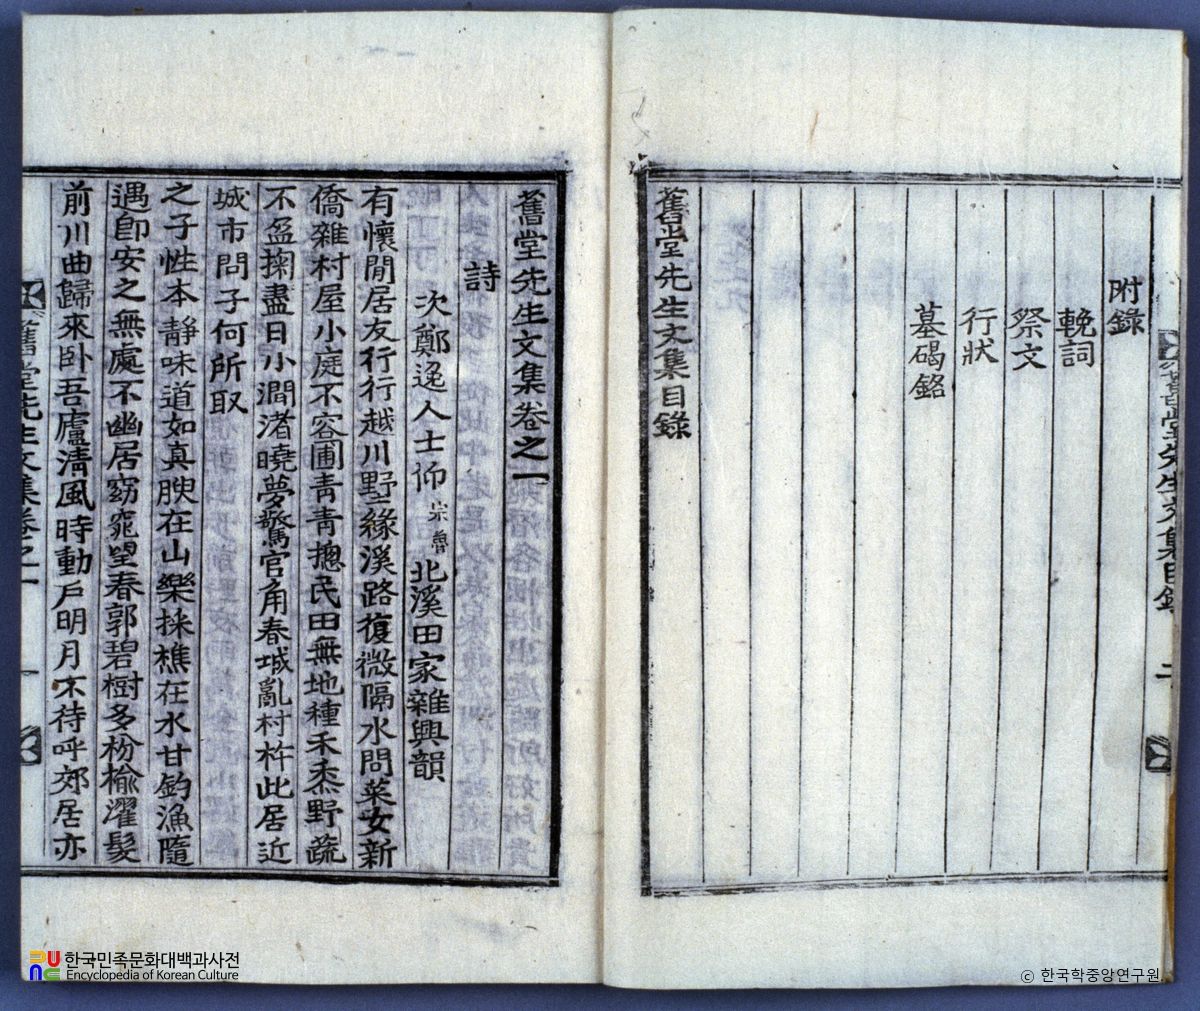 附錄
輓詞
祭文
行狀
墓碣銘
舊堂先生文集目錄
舊堂先生文集目錄 二
舊堂先生文集卷之一
詩
次鄭逸人士仰宗魯北溪田家雜興韻
有懷閒居友行行越川野緣溪路復微隔水問菜女新
僑雜村屋小庭不容圃靑靑摠民田無地種禾黍野蔬
不盈掬盡日小澗渚曉夢驚官角春城亂村杵此居近
城市問子何所取
之子性本靜味道如真腴在山樂採樵在水甘釣漁隨
遇卽安之無處不幽居窈窕望春郭碧樹多枌楡濯髮
前川曲歸來卧吾廬淸風時動戶明月不待呼郊居亦
舊堂先生文集卷之一 一
한국민족문화대백과사전
Encyclopedia of Korean Culture
ⓒ 한국학중앙연구원